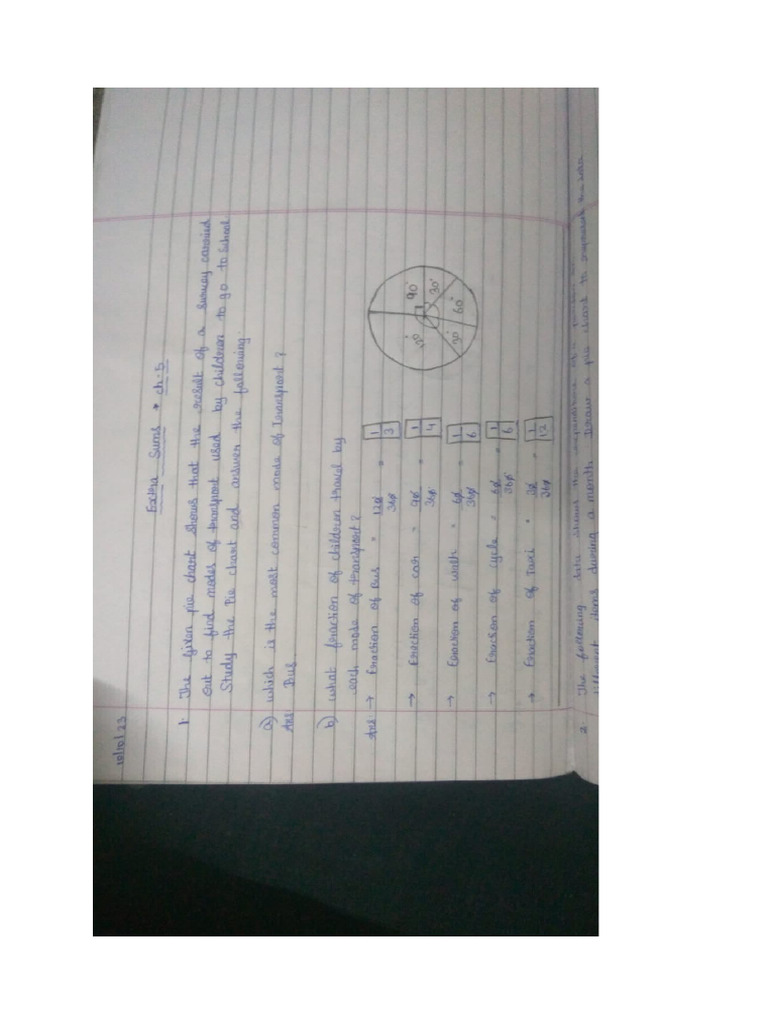 18/10/23
Extra Sums * ch.5
1. The given pie chart shows that the result of a survey carried
out to find modes of transport used by children to go to School
Study the Pie chart and answer the following.
a) which is the most common mode of Transport?
Ans Bus
b) what fraction of children travel by
each mode of transport?
Ans → Fraction of Bus = 120/360 = 1/3
→ Fraction of car = 90/360 = 1/4
→ Fraction of walk = 60/360 = 1/6
→ Fraction of cycle = 60/360 = 1/6
→ Fraction of Taxi = 30/360 = 1/12
90°
30°
60°
2. The following data shows the expenditure of a
different items during a month. Draw a pie chart to represent the